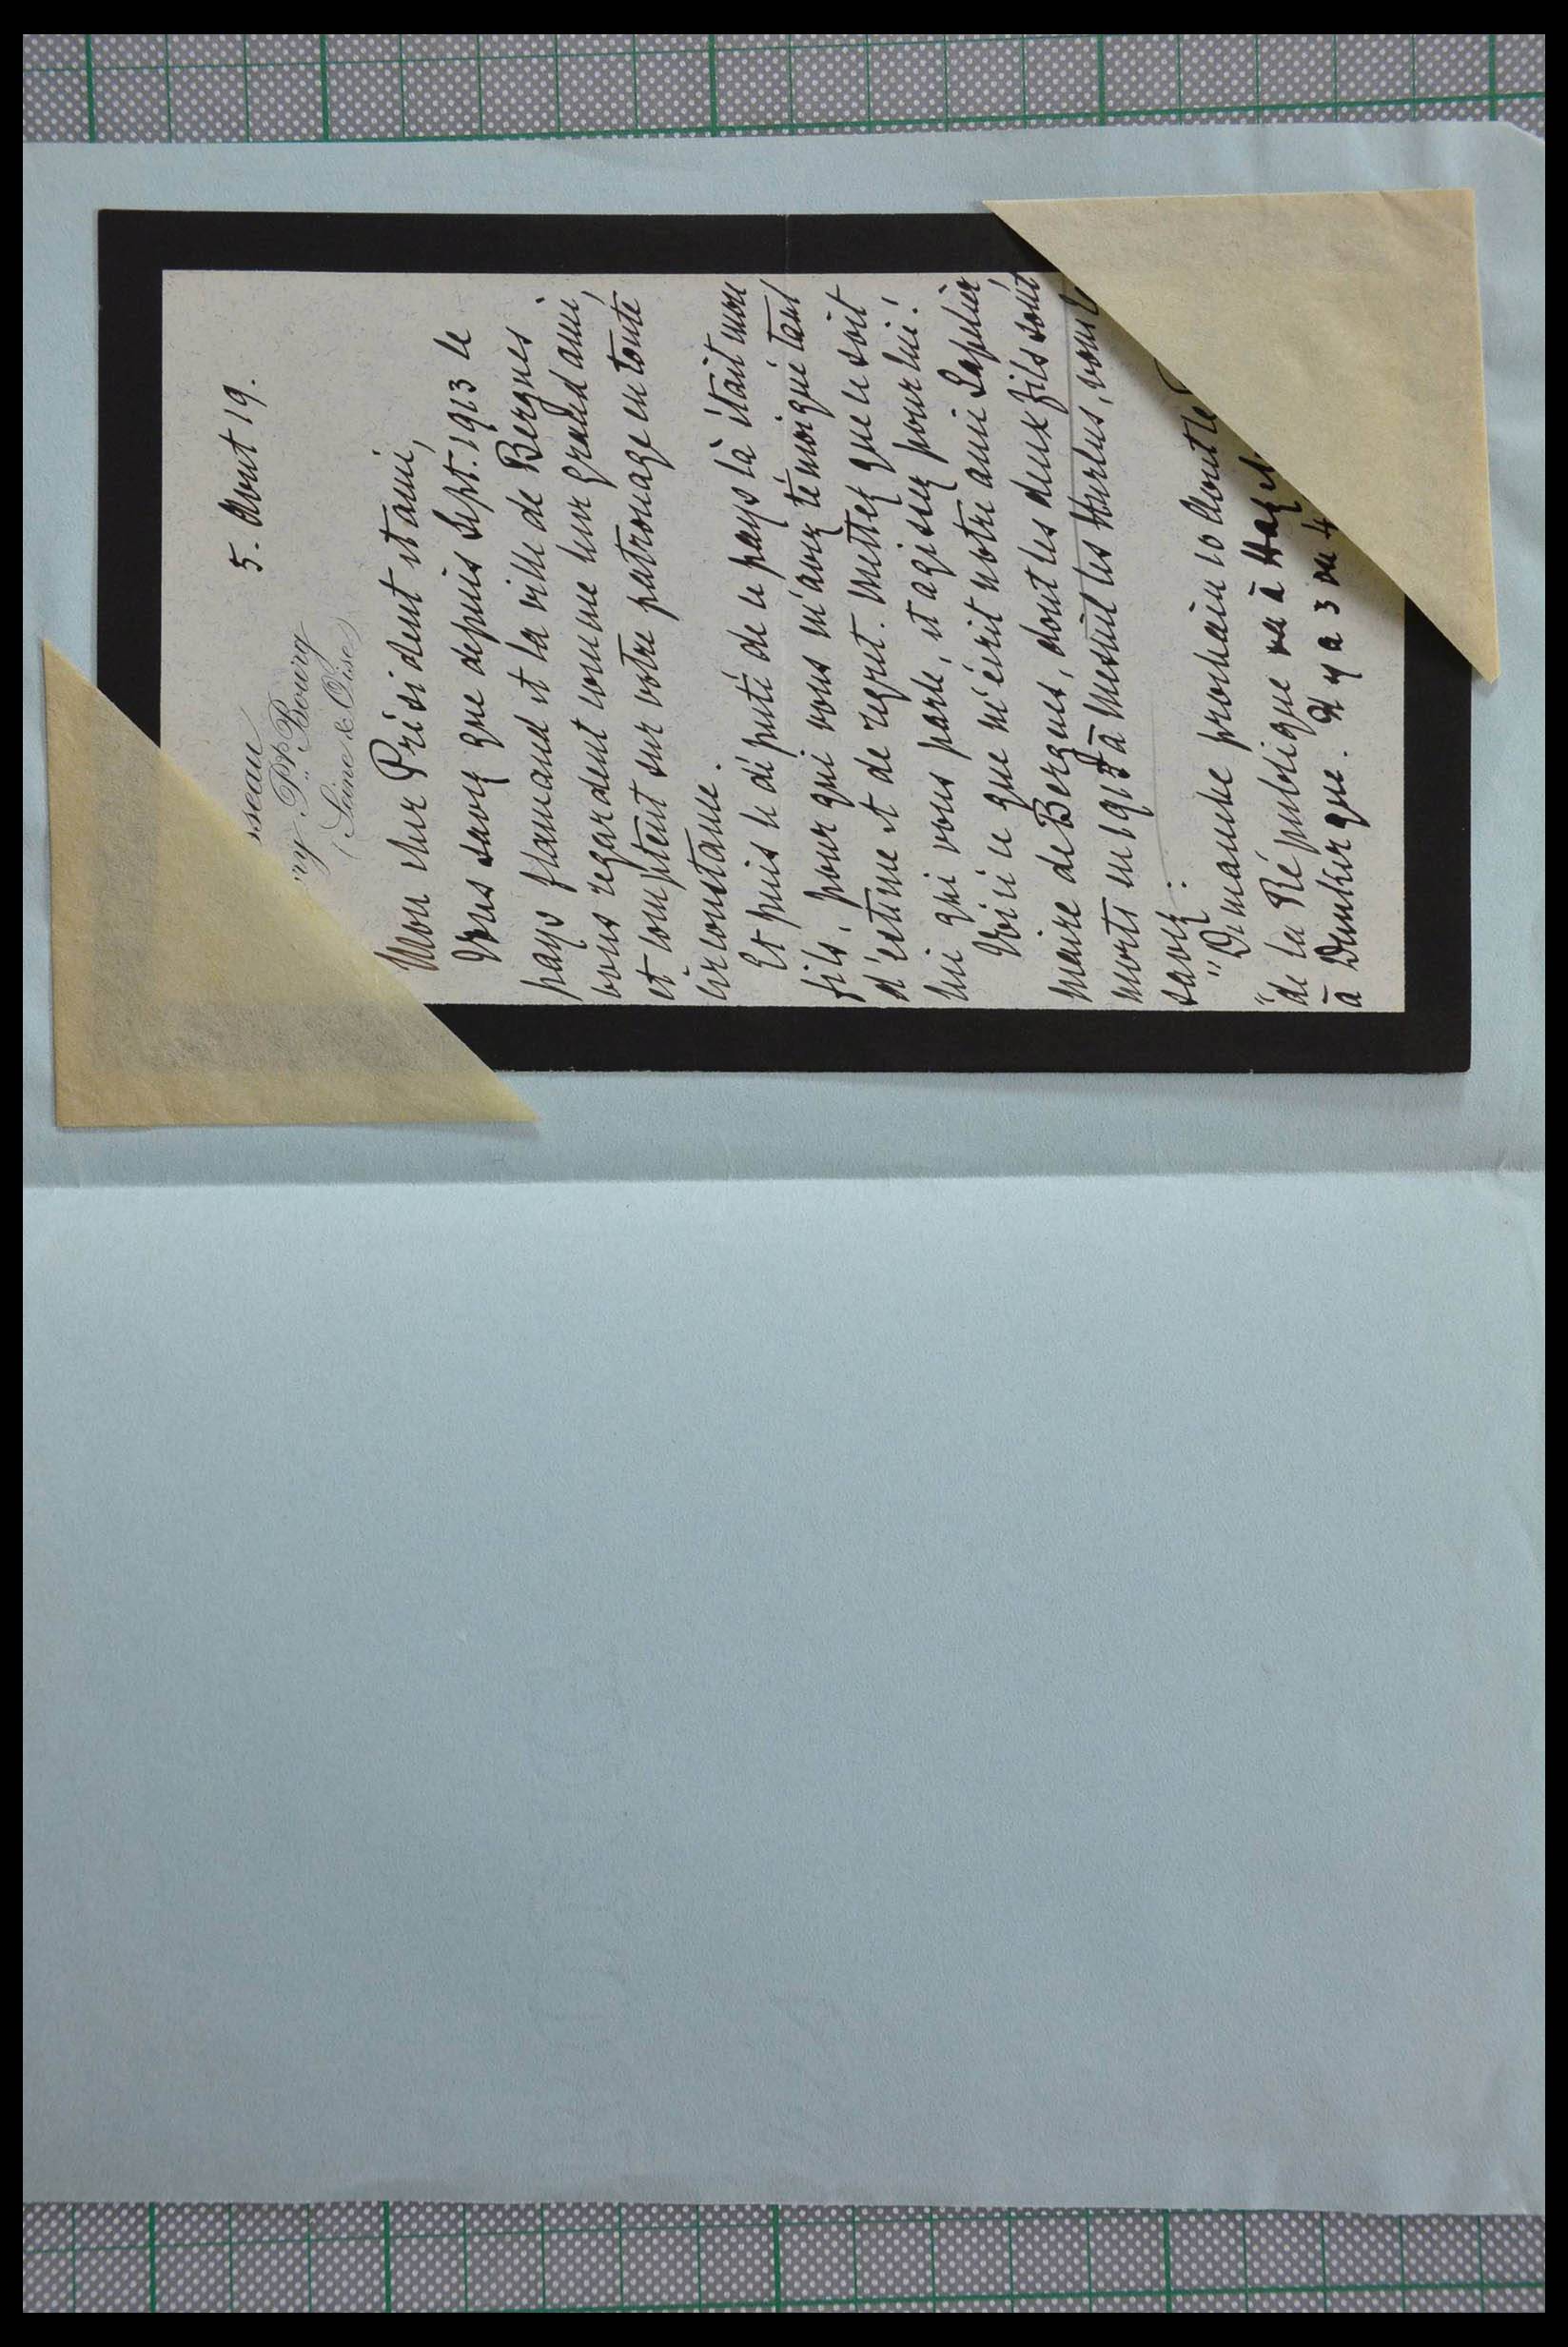 5. Aout 19.
sseau
ny Pt Bourg
(Seine & Oise)
Mon cher Président et ami,
Vous savez que depuis Sept. 1913 le
pays flamand et la ville de Bergues
vous regardent comme leur grand ami,
et comptent sur votre patronage en toute
circonstance.
Et puis le député de ce pays là était mon
fils, pour qui vous m'avez témoigné tant
d'estime et de regret. Mettez que ce soit
lui qui vous parle, et agissez pour lui!
Voici ce que m'écrit notre ami
maire de Bergues, dont les deux fils sont
morts en 1915 à Mesnil les Hurlus, vous le
savez :
"Dimanche prochain 10 Aout le
"de la République va à
à Dunkerque. Il y a 3 ou 4